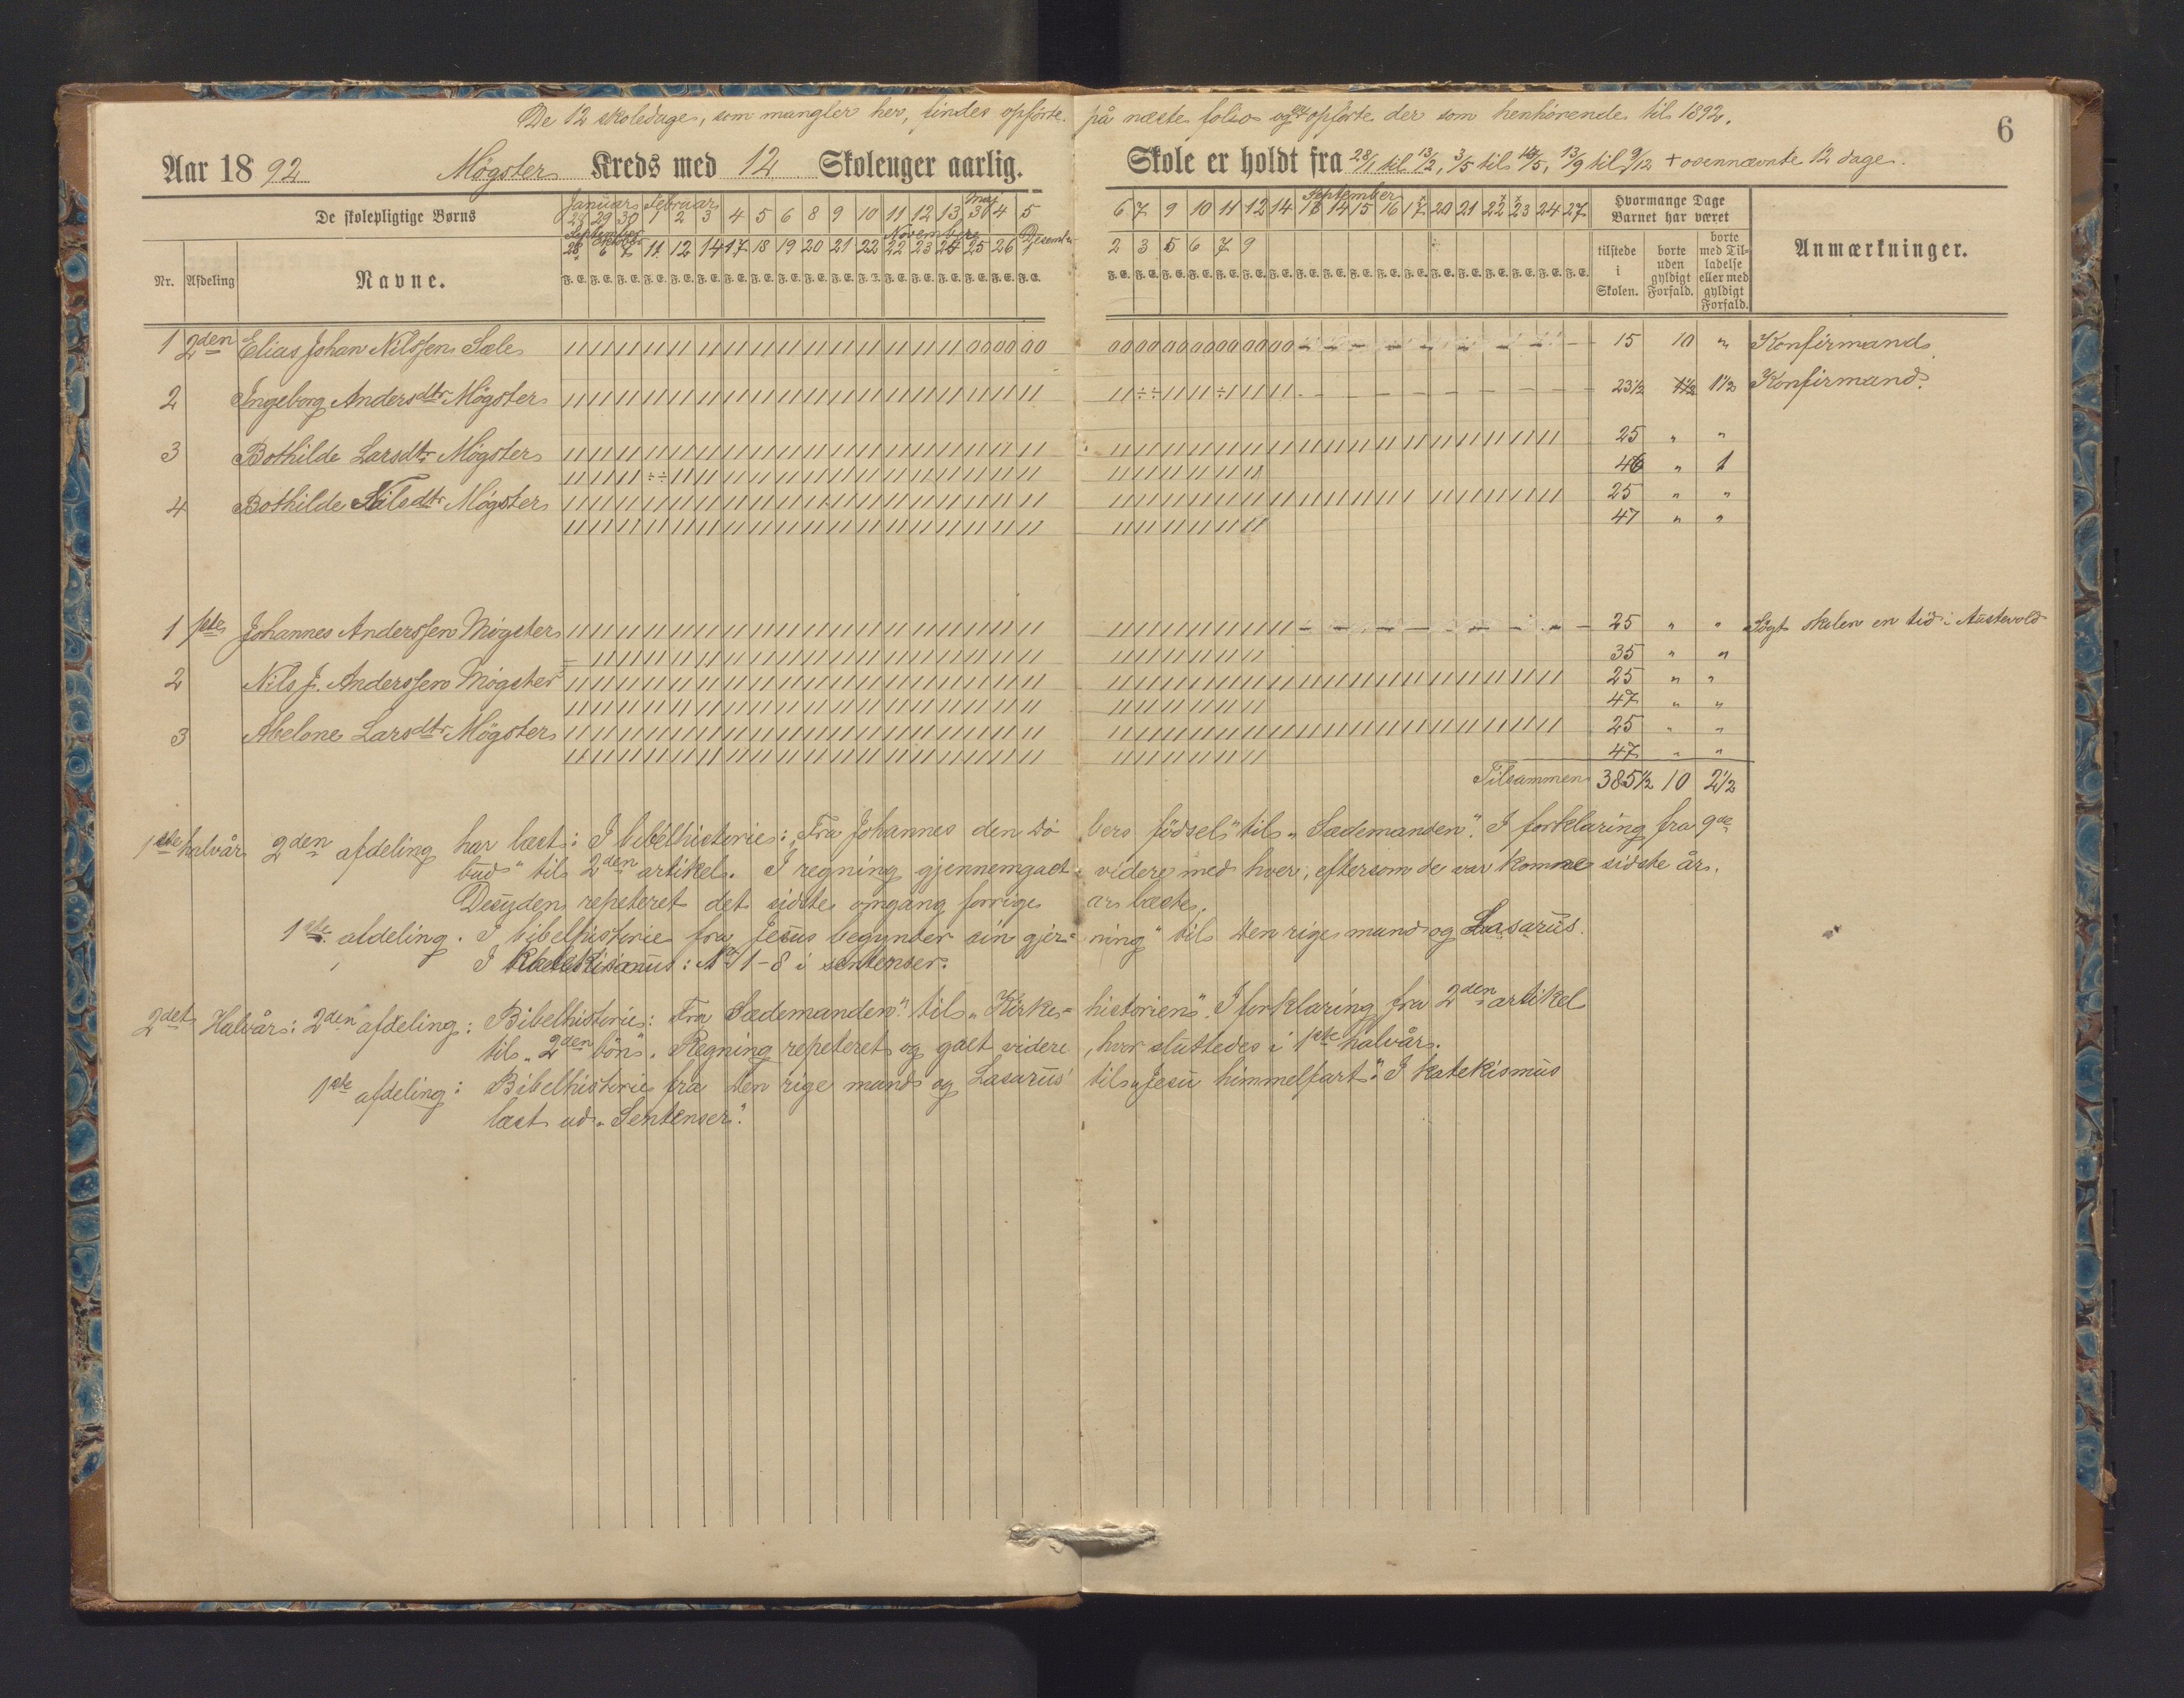 De 12 skoledage, som mangler her, findes opførte på næste folio og er opførte der som henhørende til 1892.
6
Aar 18 92 Møgster Kreds med 12 Skoleuger aarlig. Skole er holdt fra 28/1 til 13/2, 3/5 til 14/5, 13/9 til 9/12 + ovennævnte 12 dage.
De skolepligtige Børns
Januar Februar Maj September
28 29 30 1 2 3 4 5 6 8 9 10 11 12 13 3 4 5 6 7 9 10 11 12 14 13 14 15 16 17 20 21 22 23 24 27
September Oktober November Desember
28 6 7 11 12 14 17 18 19 20 21 22 22 23 24 25 26 1 2 3 5 6 7 9
Hvormange Dage Barnet har været
Nr. Afdeling Navne. F. E. tilstede i Skolen. borte uden gyldigt Forfald. borte med Tilladelse eller med gyldigt Forfald. Anmærkninger.
1 2den Elias Johan Nilssen Sæle 15 10 " Konfirmand.
2 Ingeborg Andersdtr Møgster 23½ 1½ Konfirmand.
3 Bothilde Larsdtr Møgster 25 " "
46 " 1
4 Bothilde Nilsdtr Møgster 25 " "
47 " "
1 1ste Johannes Anderssen Møgster 25 " " Søgt skolen en tid i Austevold
35 " "
2 Nils J. Anderssen Møgster 25 " "
47 " "
3 Abelone Larsdtr Møgster 25 " "
47 " "
Tilsammen 385½ 10 2½
1ste halvår 2den afdeling har læst: I bibelhistorie: "Fra Johannes den døbers fødsel" til "Sædemanden". I forklaring fra 9de
bud" til 2den artikel. I regning gjennemgaet videre med hver, eftersom de var komne sidste år.
Desuden repeteret det sidste omgang forrige år læste.
1ste afdeling. I bibelhistorie fra Jesus begynder sin gjerning" til "den rige mand og Lasarus.
I Katekismus: No 1-8 i sentenser.
2det Halvår: 2den afdeling: Bibelhistorie: Fra Sædemanden" til "Kirkehistorien". I forklaring fra 2den artikel
til "2den bøn". Regning repeteret og gaet videre, hvor sluttedes i 1ste halvår.
1ste afdeling: Bibelhistorie fra den rige mand og Lasarus" til "Jesu himmelfart". I Katekismus
læst ud "Sentenser".